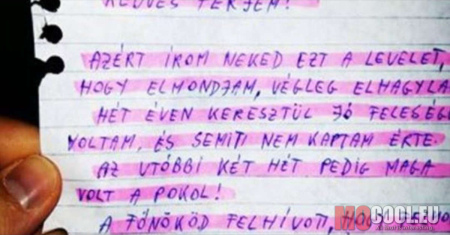 KEDVES FÉRJEM!
AZÉRT ÍROM NEKED EZT A LEVELET,
HOGY ELMONDJAM, VÉGLEG ELHAGYLA
HÉT ÉVEN KERESZTÜL JÓ FELESÉGE
VOLTAM, ÉS SEMMIT NEM KAPTAM ÉRTE.
AZ UTÓBBI KÉT HÉT PEDIG MAGA
VOLT A POKOL!
A FŐNÖKÖD FELHÍVOTT,
COOL.EU